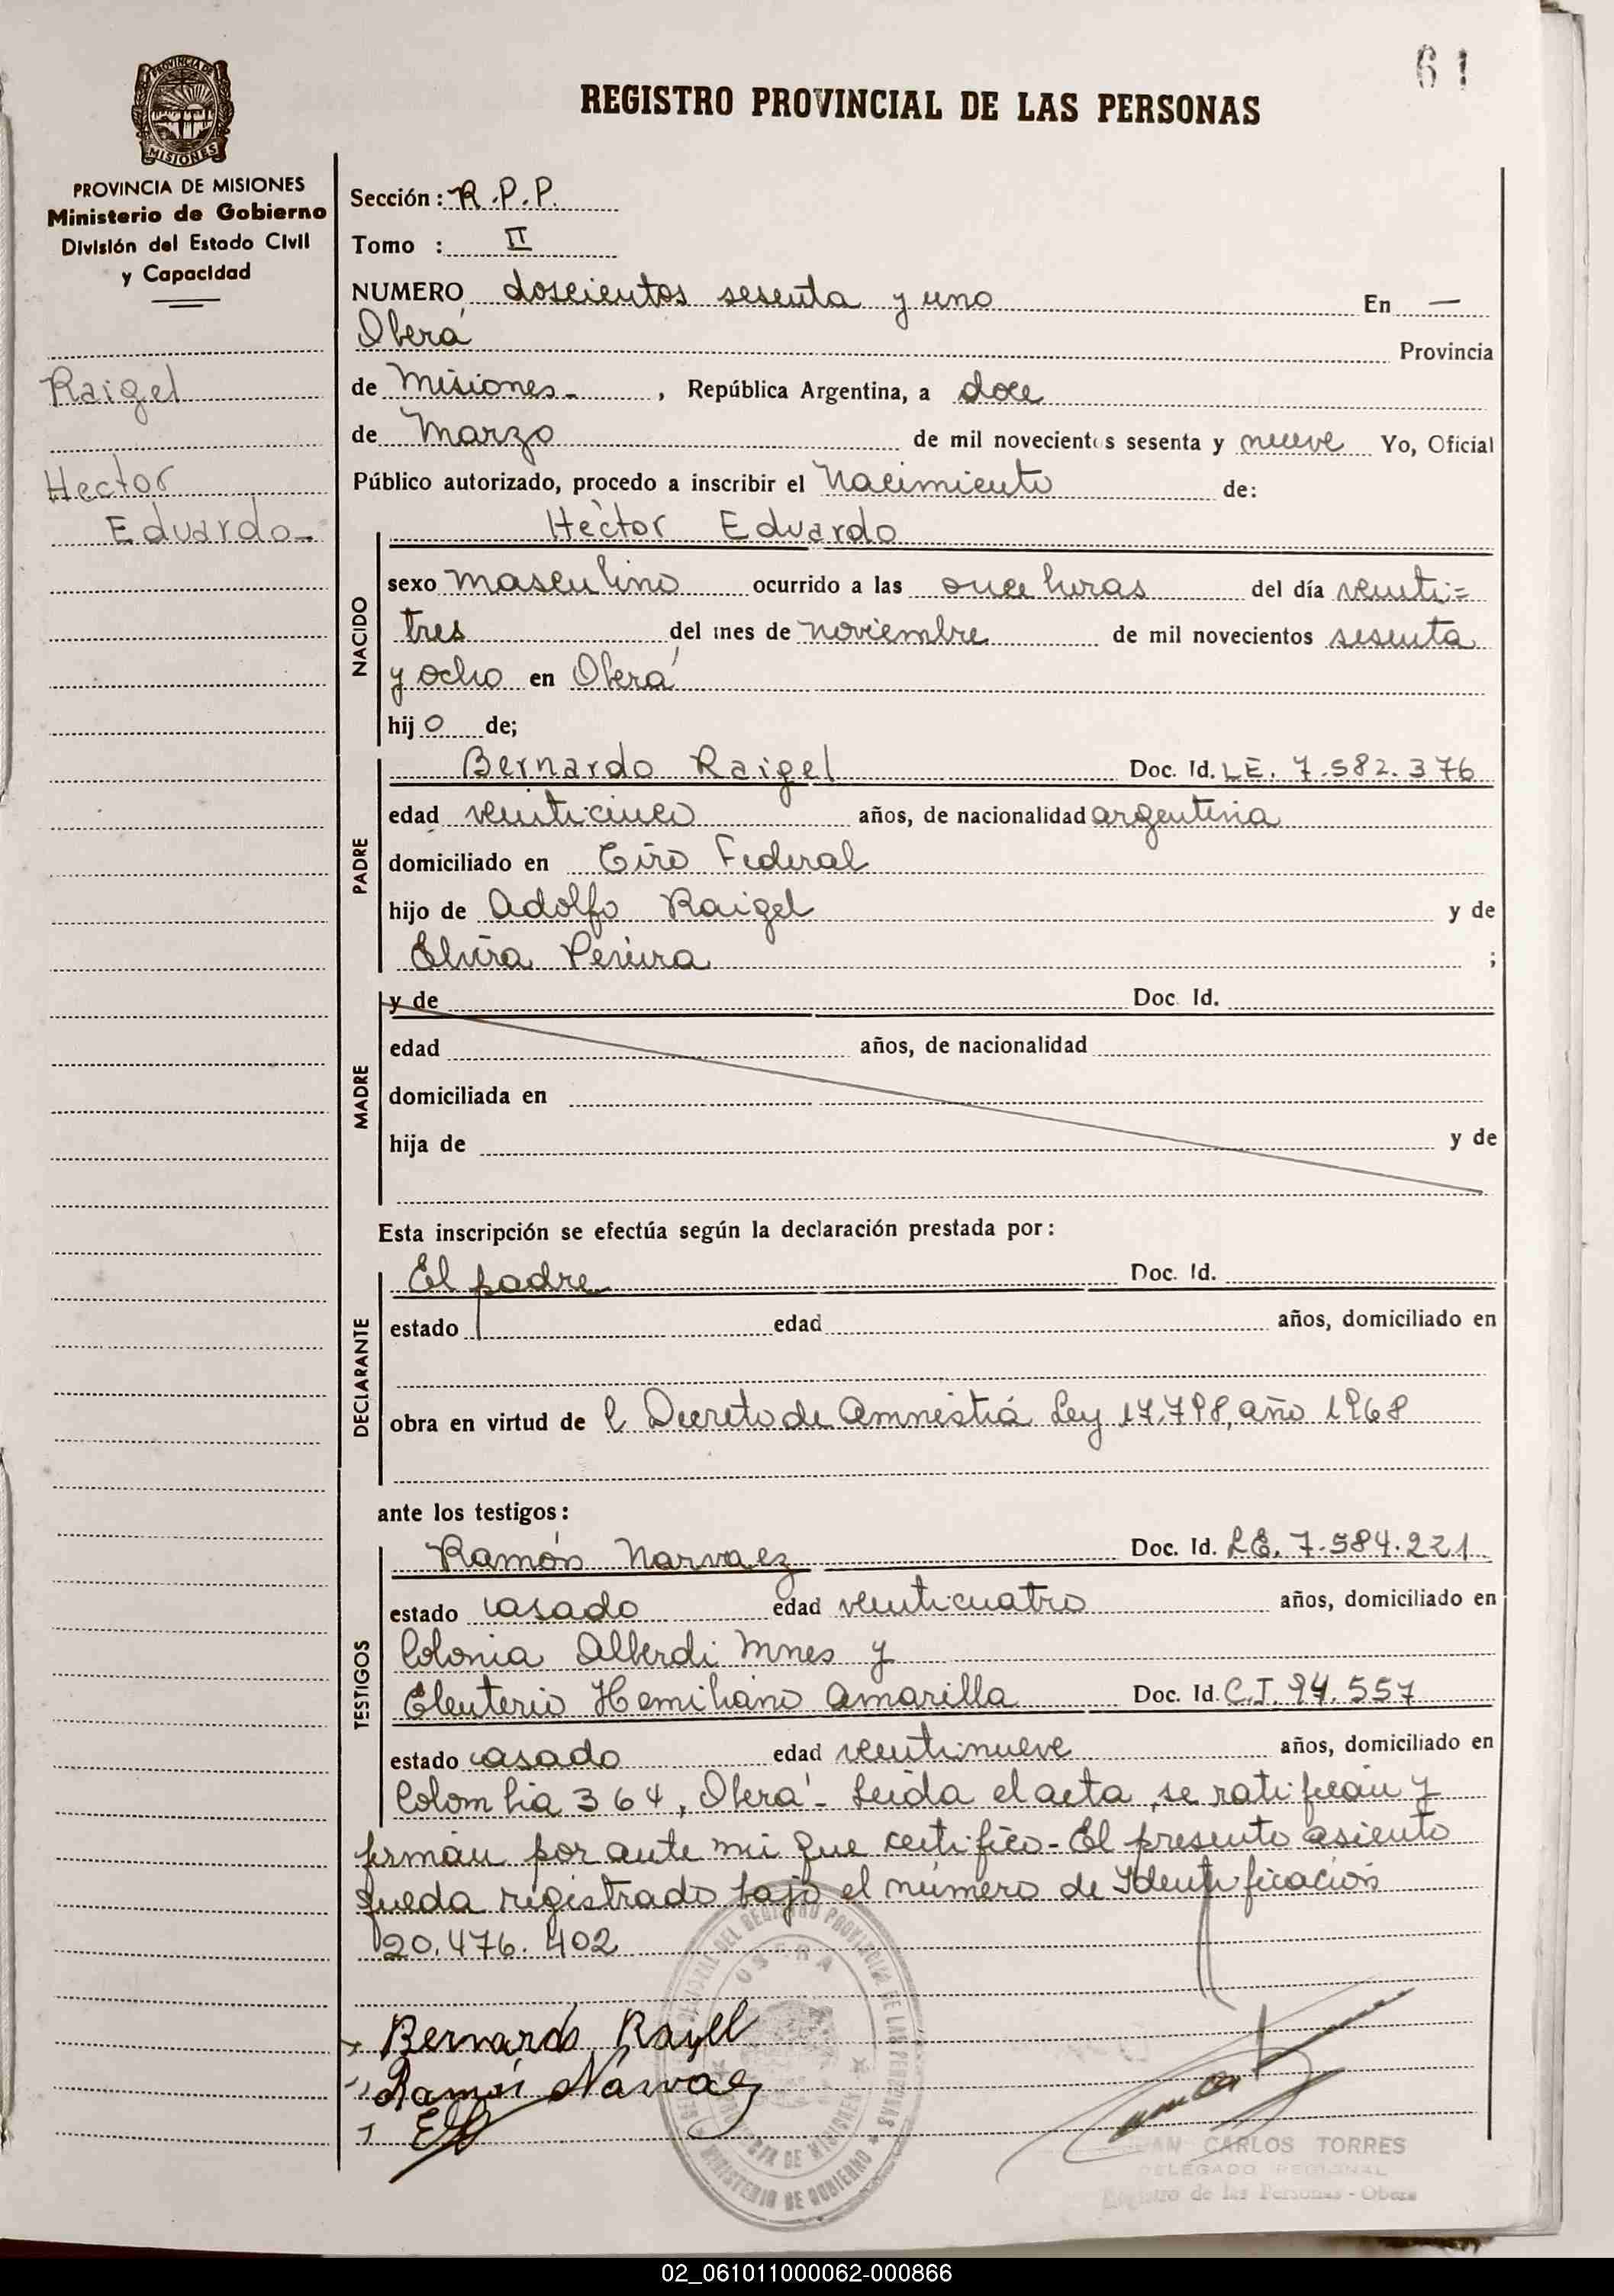 61
REGISTRO PROVINCIAL DE LAS PERSONAS
PROVINCIA DE MISIONES
MISIONES
PROVINCIA DE MISIONES
Ministerio de Gobierno
División del Estado Civil
y Capacidad
Raigel
Hector
Eduardo-
Sección: R.P.P.
Tomo : II
NUMERO doscientos sesenta y uno En —
Oberá Provincia
de Misiones- , República Argentina, a doce
de Marzo de mil novecientos sesenta y nueve Yo, Oficial
Público autorizado, procedo a inscribir el Nacimiento de:
Hèctor Eduardo
NACIDO
sexo masculino ocurrido a las once horas del día veinti=
tres del mes de noviembre de mil novecientos sesenta
y ocho en Oberá
hij o de;
PADRE
Bernardo Raigel Doc. Id. LE. 7.582.376
edad veinticinco años, de nacionalidad argentina
domiciliado en Tiro Federal
hijo de Adolfo Raigel y de
Elvira Pereira ;
MADRE
y de Doc. Id.
edad años, de nacionalidad
domiciliada en
hija de y de
Esta inscripción se efectúa según la declaración prestada por:
DECLARANTE
El padre Doc. Id.
estado edad años, domiciliado en
obra en virtud de l Decreto de Amnistiá Ley 17.798, año 1968
ante los testigos:
TESTIGOS
Ramón Narvaez Doc. Id. LE. 7.584.221
estado casado edad veinticuatro años, domiciliado en
Colonia Alberdi Mnes y
Eleuterio Hemiliano Amarilla Doc. Id. C.I. 94.557
estado casado edad veintinueve años, domiciliado en
Colombia 364, Oberá- Leida el acta, se ratifican y
firman por ante mi que certifico- El presente asiento
queda registrado bajo el número de Identificación
20.476.402
Bernardo Raigel
Ramón Narvaez
REGISTRO PROVINCIAL DE LAS PERSONAS
OBERA
PROVINCIA DE MISIONES
MINISTERIO DE GOBIERNO
JUAN CARLOS TORRES
DELEGADO REGIONAL
Registro de las Personas - Obera
02_061011000062-000866